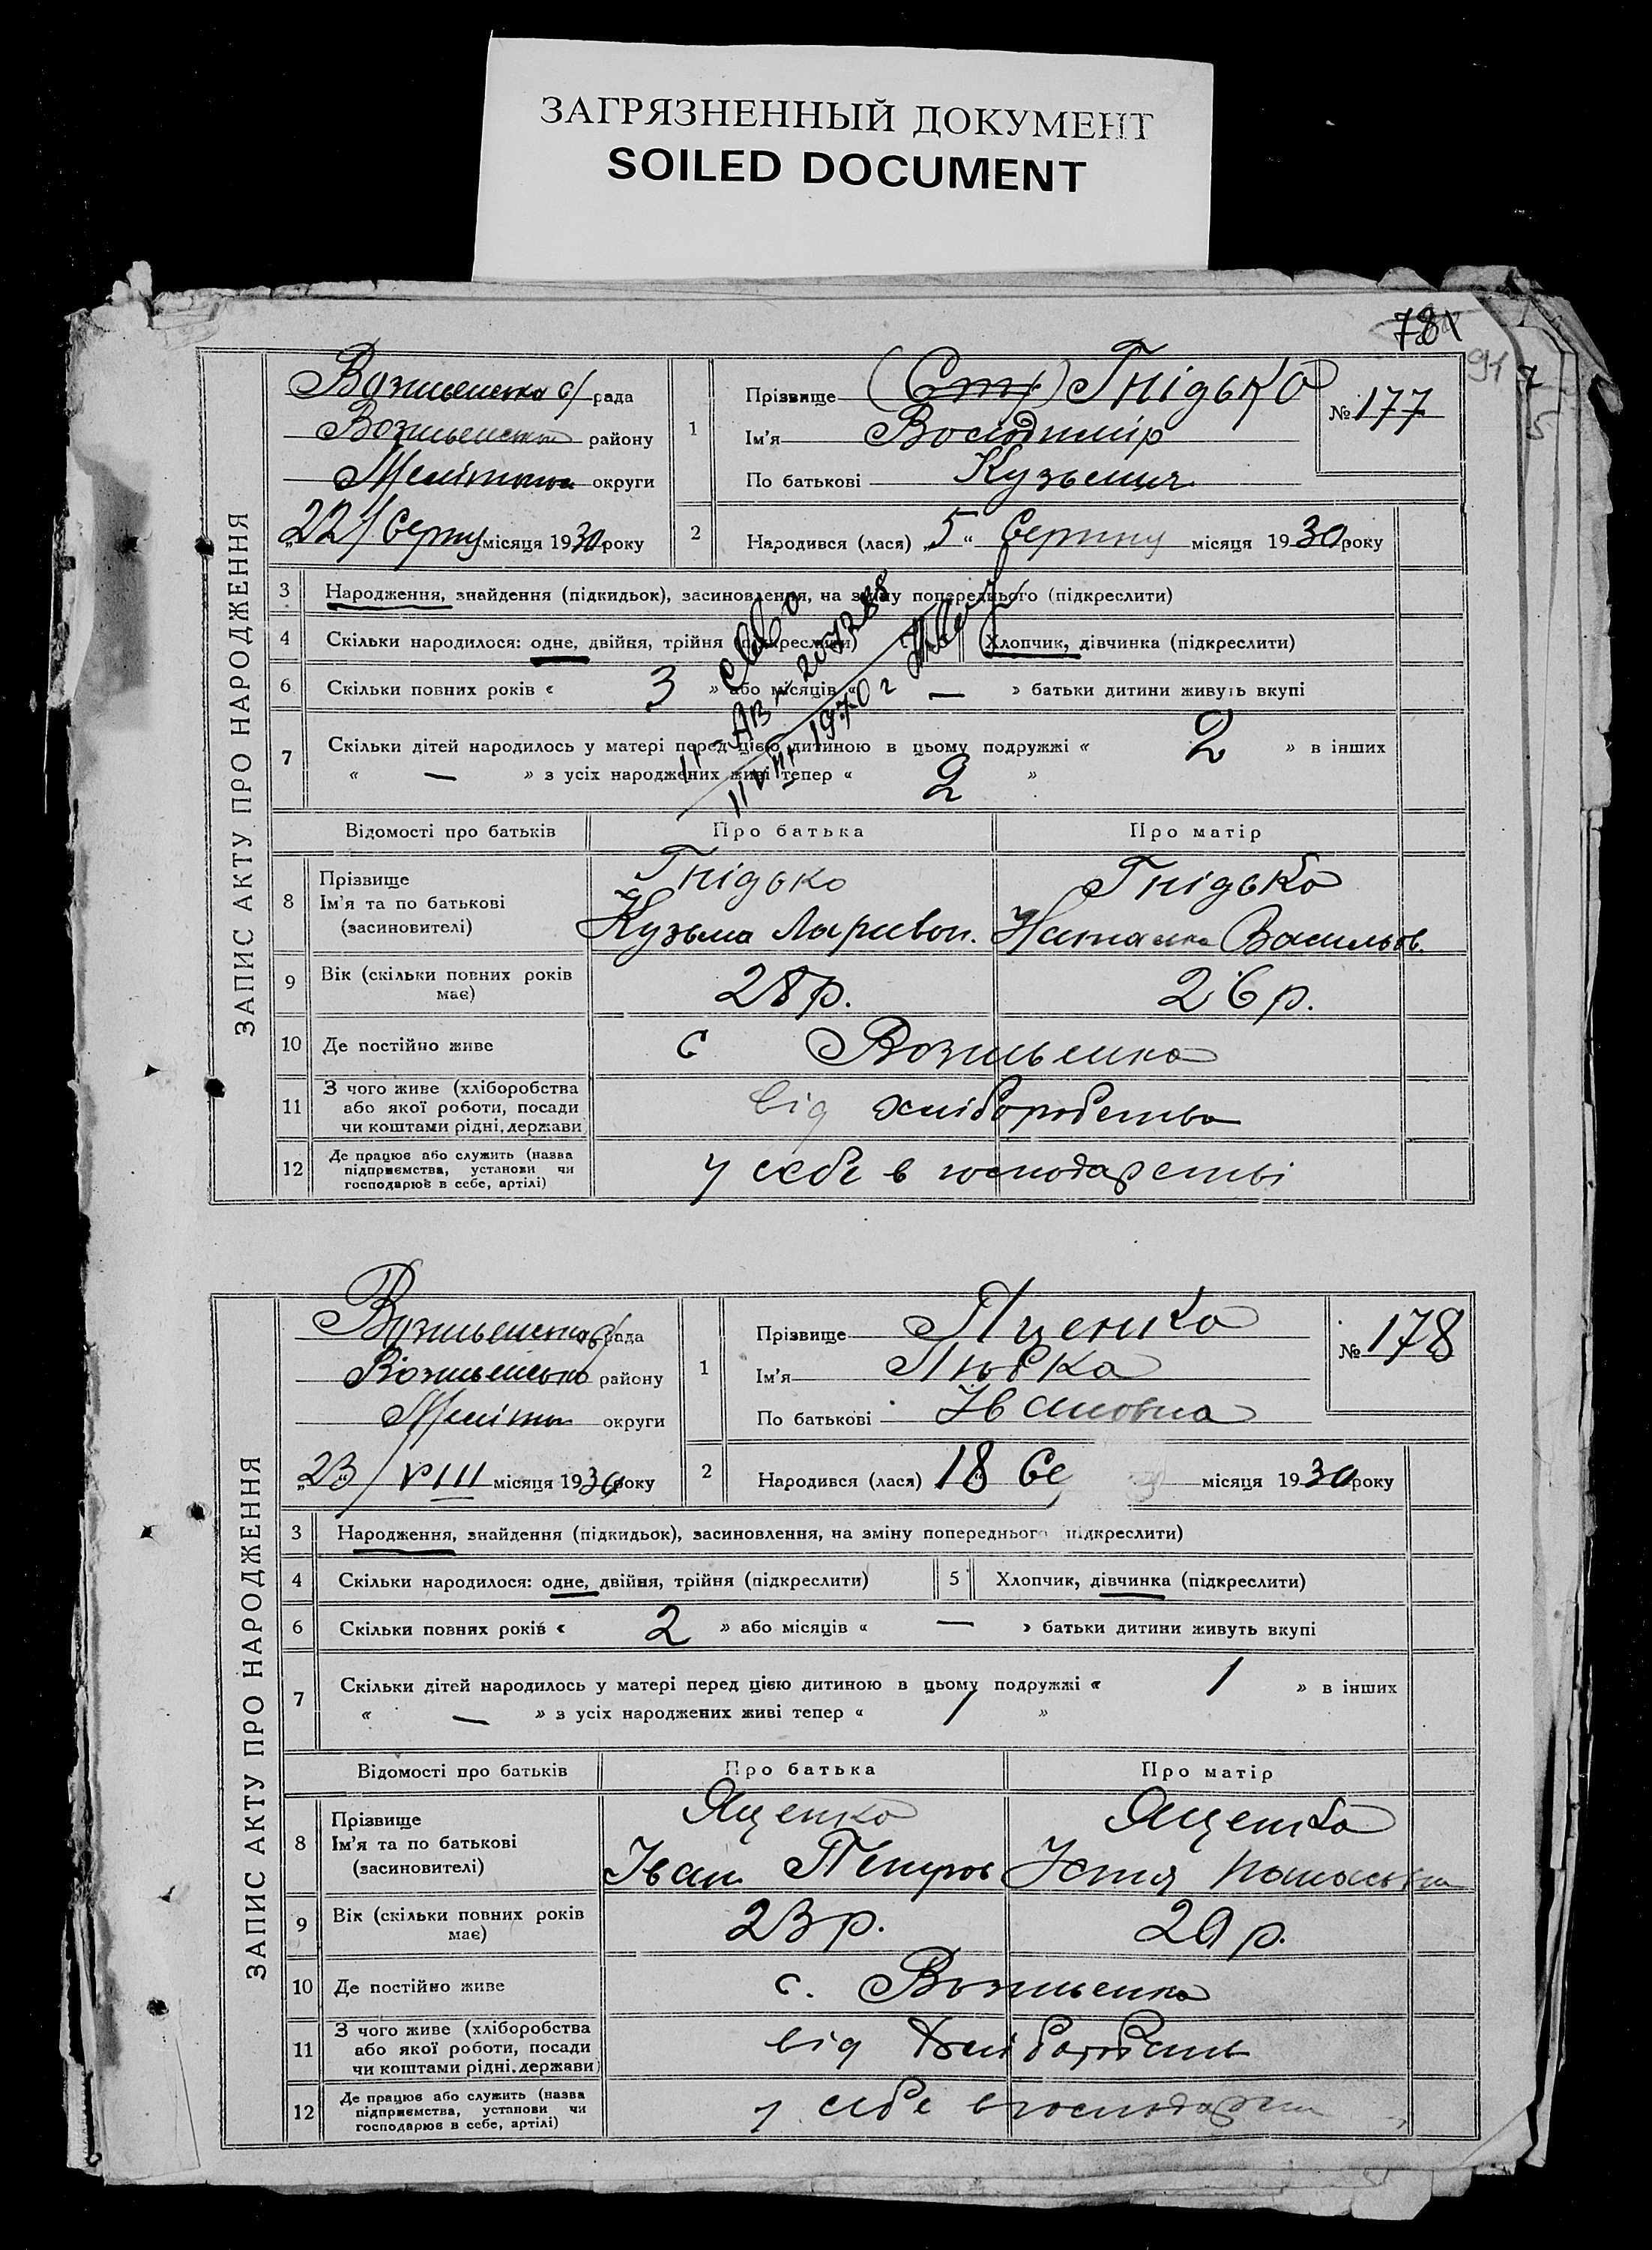 ЗАГРЯЗНЕННЫЙ ДОКУМЕНТ
SOILED DOCUMENT
78
91
ЗАПИС АКТУ ПРО НАРОДЖЕННЯ
рада
району
округи
„22/ Серпн місяця 1930 року
1
Прізвище Гнідько
Ім'я Володимір
По батькові Кузьмич
№ 177
2
Народився (лася) „5“ Серпня місяця 1930 року
3 Народження, знайдення (підкидьок), засиновлення, на зміну попереднього (підкреслити)
4 Скільки народилося: одне, двійня, трійня (підкреслити) Хлопчик, дівчинка (підкреслити)
6 Скільки повних років « 3 » або місяців « — » батьки дитини живуть вкупі
7 Скільки дітей народилось у матері перед цією дитиною в цьому подружжі « 2 » в інших
« — » з усіх народжених живі тепер « 2 »
1970 г
Відомості про батьків Про батька Про матір
8 Прізвище Гнідько Гнідько
Ім'я та по батькові Кузьма Ларивон. Васильов.
(засновителі)
9 Вік (скільки повних років має) 28 р. 26 р.
10 Де постійно живе с Вознесенка
11 З чого живе (хліборобства або якої роботи, посади чи коштами рідні, держави) від хліборобства
12 Де працює або служить (назва підприємства, установи чи господарює в себе, артілі) у себе в господарстві
ЗАПИС АКТУ ПРО НАРОДЖЕННЯ
рада
району
округи
„23/VIII місяця 1930 року
1
Прізвище Яценко
Ім'я Любка
По батькові Івановна
№ 178
2
Народився (лася) 18 Се місяця 1930 року
3 Народження, знайдення (підкидьок), засиновлення, на зміну попереднього (підкреслити)
4 Скільки народилося: одне, двійня, трійня (підкреслити) 5 Хлопчик, дівчинка (підкреслити)
6 Скільки повних років « 2 » або місяців « — » батьки дитини живуть вкупі
7 Скільки дітей народилось у матері перед цією дитиною в цьому подружжі « 1 » в інших
« — » з усіх народжених живі тепер « 1 »
Відомості про батьків Про батька Про матір
8 Прізвище Яценко Яценко
Ім'я та по батькові Іван Петров
(засиновителі)
9 Вік (скільки повних років має) 23 р.
10 Де постійно живе с. Вознесенка
11 З чого живе (хліборобства або якої роботи, посади чи коштами рідні, держави) від
12 Де працює або служить (назва підприємства, установи чи господарює в себе, артілі) у себе в